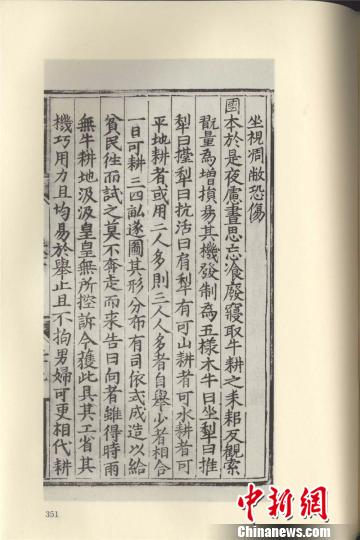 坐視凋敝恐傷
國本於是夜慮晝思忘飡廢寢取牛耕之耒耜反觀索
翫量為增損易其機發制為五樣木牛曰坐犁曰推
犁曰擡犁曰抗活曰肩犁有可山耕者可水耕者可
平地耕者或用二人多則三人人多者自舉少者相合
一日可耕三四畝遂圖其形分布有司依式成造以給
貧民徃而試之莫不奔走而来告曰向者雖得時雨
無牛耕地汲汲皇皇無所控訴今獲此具其工省其
機巧用力且均易於舉止且不拘男婦可更相代耕
351
中新网
www.chinanews.com